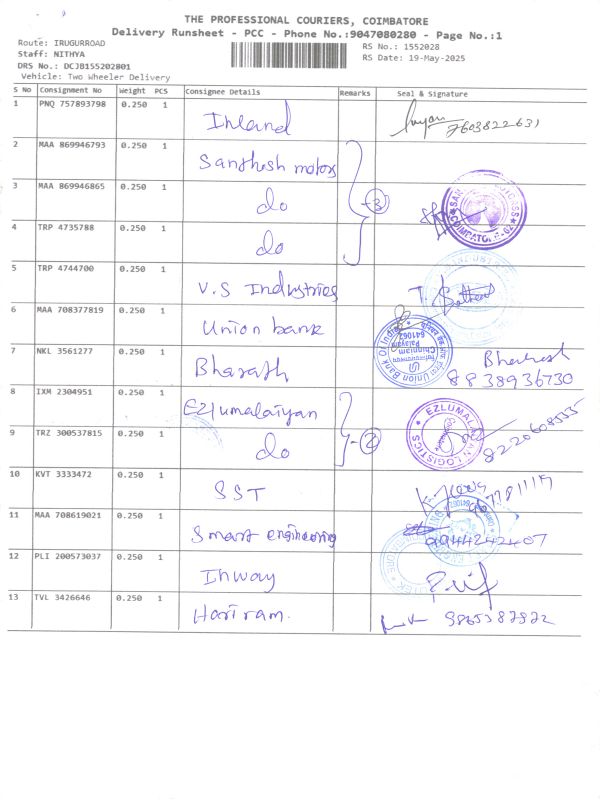 THE PROFESSIONAL COURIERS, COIMBATORE
Delivery Runsheet - PCC - Phone No.:9047080280 - Page No.:1
Route: IRUGURROAD
Staff: NITHYA
DRS No.: DCJB155202801
Vehicle: Two Wheeler Delivery
RS No.: 1552028
RS Date: 19-May-2025
S No Consignment No Weight PCS Consignee Details Remarks Seal & Signature
1 PNQ 757893798 0.250 1 Inland 7603822631
2 MAA 869946793 0.250 1 Santhosh motors
3 MAA 869946865 0.250 1 do -3
4 TRP 4735788 0.250 1 do
5 TRP 4744700 0.250 1 V.S Industries
6 MAA 708377819 0.250 1 Union bank
7 NKL 3561277 0.250 1 Bharath 8838936730
8 IXM 2304951 0.250 1 Ezlumalaiyan
9 TRZ 300537815 0.250 1 do -2 8220608555
EZLUMALAIYAN LOGISTICS
10 KVT 3333472 0.250 1 SST
11 MAA 708619021 0.250 1 Smart engineering 9944242407
12 PLI 200573037 0.250 1 Inway
13 TVL 3426646 0.250 1 Hariram. 9865387872